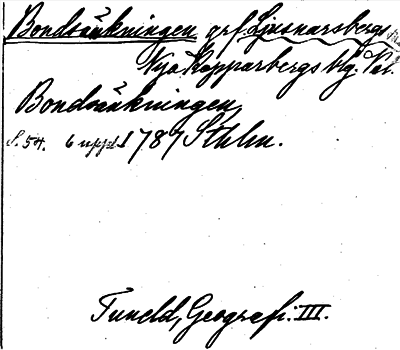 Bondsänkningen grf. Ljusnarsbergs
Nya Kopparbergs blg. Vst.
Bondsänkningen,
S. 54. 6 uppl. 1787 Sthlm.
Tuneld, Geografi: III.